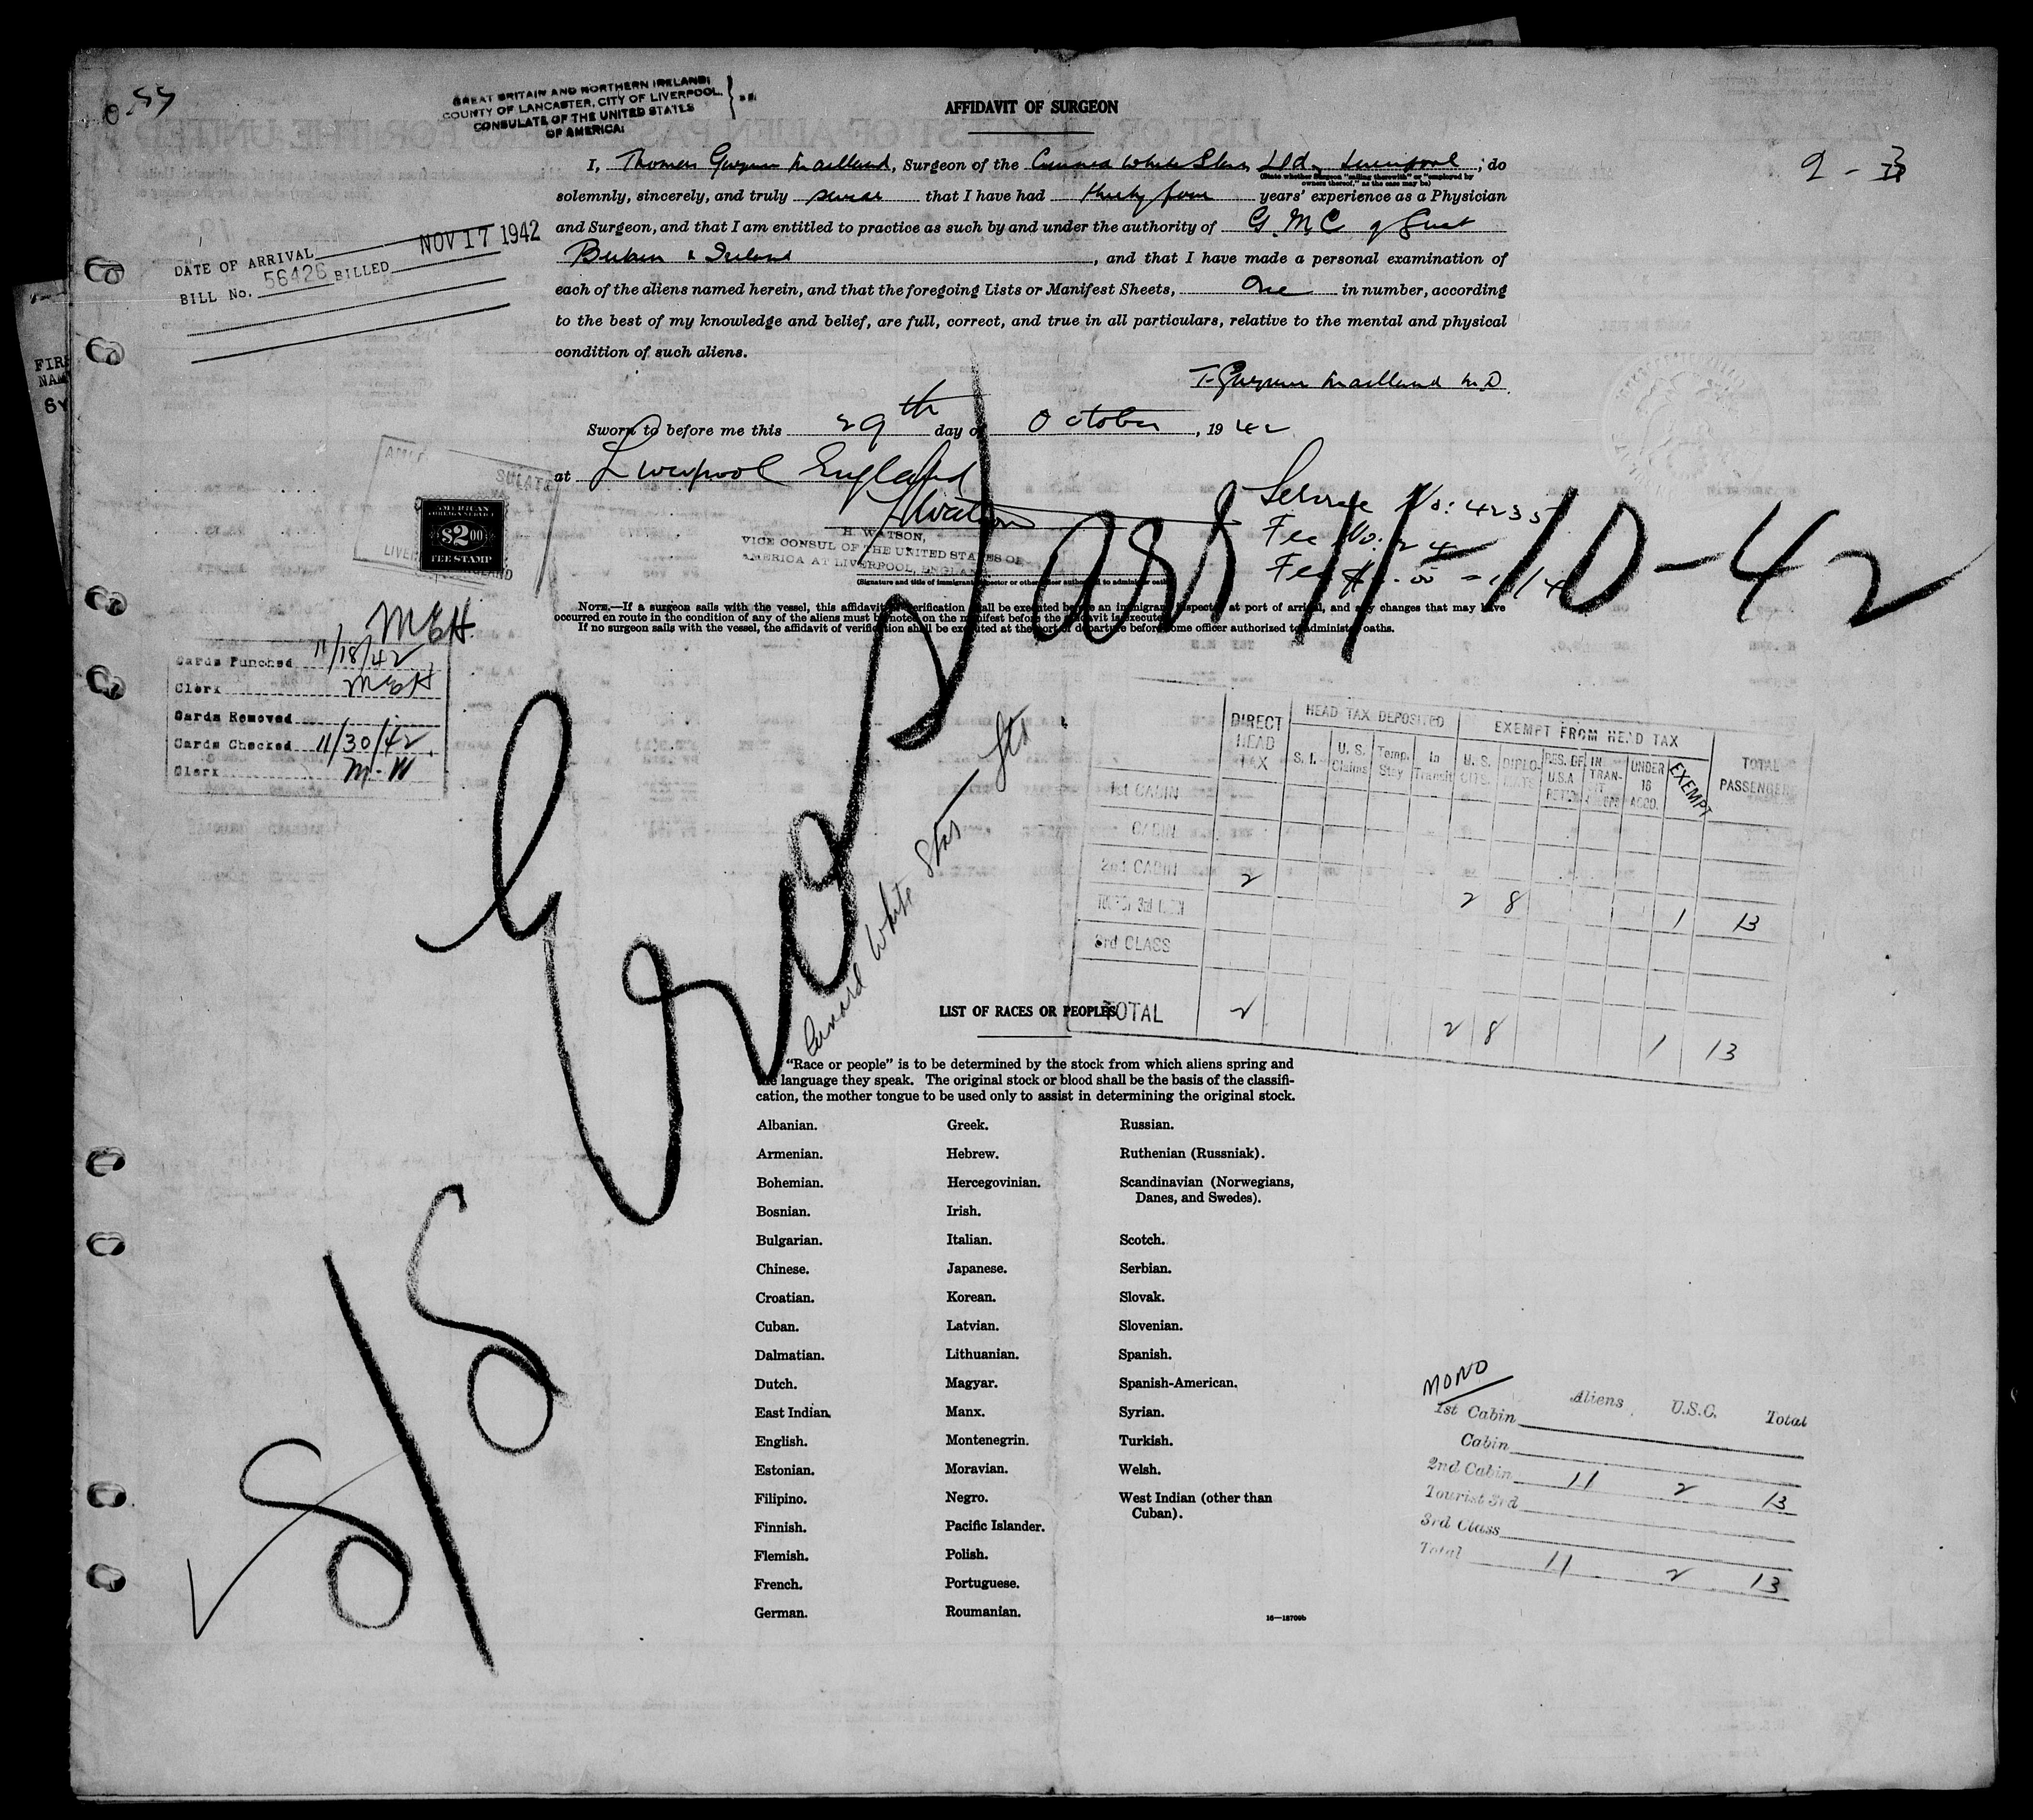 GREAT BRITAIN AND NORTHERN IRELAND;
COUNTY OF LANCASTER, CITY OF LIVERPOOL,
CONSULATE OF THE UNITED STATES
OF AMERICA:
AFFIDAVIT OF SURGEON
I, Thomas Maitland, Surgeon of the Cunard White Star Ltd, Liverpool; do
(State whether Surgeon "sailing therewith" or "employed by
owners thereof," as the case may be)
solemnly, sincerely, and truly swear that I have had thirty four years' experience as a Physician
and Surgeon, and that I am entitled to practice as such by and under the authority of G.M.C of Great
Britain & Ireland, and that I have made a personal examination of
each of the aliens named herein, and that the foregoing Lists or Manifest Sheets, One in number, according
to the best of my knowledge and belief, are full, correct, and true in all particulars, relative to the mental and physical
condition of such aliens.
T. Maitland M.D.
Sworn to before me this 29th day of October, 1942
at Liverpool England
HWatson
H. WATSON,
VICE CONSUL OF THE UNITED STATES OF
AMERICA AT LIVERPOOL, ENGLAND
(Signature and title of immigrant inspector or other officer authorized to administer oaths)
Service No: 4235
Fee No:
NOTE.—If a surgeon sails with the vessel, this affidavit of verification shall be executed before an immigrant inspector at port of arrival, and any changes that may have
occurred en route in the condition of any of the aliens must be noted on the manifest before the affidavit is executed.
If no surgeon sails with the vessel, the affidavit of verification shall be executed at the port of departure before some officer authorized to administer oaths.
2 - 3
DATE OF ARRIVAL NOV 17 1942
BILL No. 56426 BILLED
AMERICAN
FOREIGN SERVICE
$2.00
FEE STAMP
MEH.
Cards Punched 11/18/42
Clerk MEH
Cards Removed
Cards Checked 11/30/42
Clerk M.W
11-10-42
S/S
Cunard White Star Ltd
DIRECT HEAD TAX
HEAD TAX DEPOSITED
EXEMPT FROM HEAD TAX
TOTAL PASSENGERS
S. I.
U. S. Claims
Temp. Stay
In Transit
U. S. CITS.
DIPLO-MATS
RES. OF U.S.A
IN TRAN-SIT
UNDER 16 ACCO.
EXEMPT
1st CABIN
CABIN
2nd CABIN 2 2 8 1 13
3rd CLASS
TOTAL 2 2 8 1 13
LIST OF RACES OR PEOPLES
"Race or people" is to be determined by the stock from which aliens spring and
the language they speak. The original stock or blood shall be the basis of the classifi-
cation, the mother tongue to be used only to assist in determining the original stock.
Albanian.
Armenian.
Bohemian.
Bosnian.
Bulgarian.
Chinese.
Croatian.
Cuban.
Dalmatian.
Dutch.
East Indian.
English.
Estonian.
Filipino.
Finnish.
Flemish.
French.
German.
Greek.
Hebrew.
Hercegovinian.
Irish.
Italian.
Japanese.
Korean.
Latvian.
Lithuanian.
Magyar.
Manx.
Montenegrin.
Moravian.
Negro.
Pacific Islander.
Polish.
Portuguese.
Roumanian.
Russian.
Ruthenian (Russniak).
Scandinavian (Norwegians,
Danes, and Swedes).
Scotch.
Serbian.
Slovak.
Slovenian.
Spanish.
Spanish-American.
Syrian.
Turkish.
Welsh.
West Indian (other than
Cuban).
16—18700b
MONO
Aliens U.S.C. Total
1st Cabin
Cabin
2nd Cabin 11 2 13
Tourist 3rd
3rd Class
Total 11 2 13